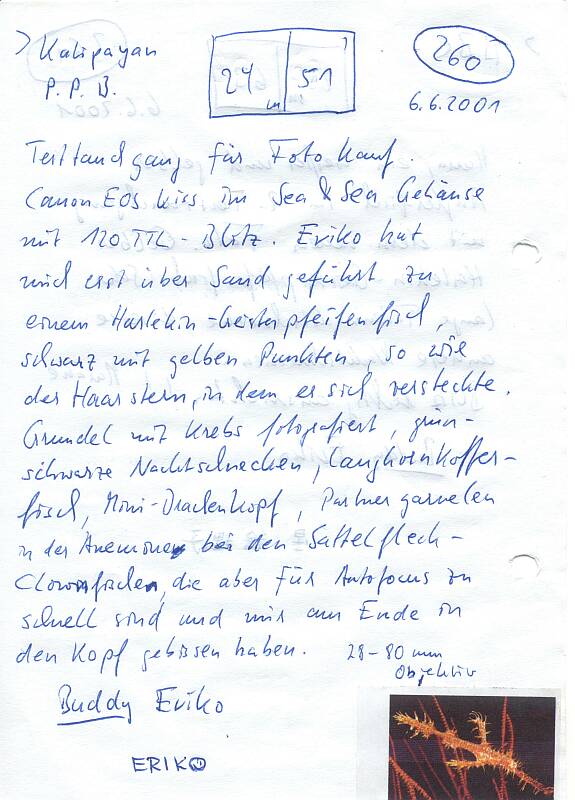 > Kalipayan
P.P.B.
24 m
51
260
6.6.2001
Testtandgang für Foto Kauf.
Canon EOS Kiss im Sea & Sea Gehäuse
mit 120 TTL - Blitz. Eriko hat
mich erst über Sand geführt zu
einem Harlekin-Geisterpfeifenfisch,
schwarz mit gelben Punkten, so wie
der Haarstern, in dem er sich versteckte.
Grundel mit Krebs fotografiert, grün-
schwarze Nachtschnecken, Langhornkoffer-
fisch, Mini-Drachenkopf, Partnergarnelen
in der Anemone bei den Sattelfleck-
Clownfischen, die aber für Autofocus zu
schnell sind und mir am Ende in
den Kopf gebissen haben.
28-80 mm
Objektiv
Buddy Eriko
ERIKO